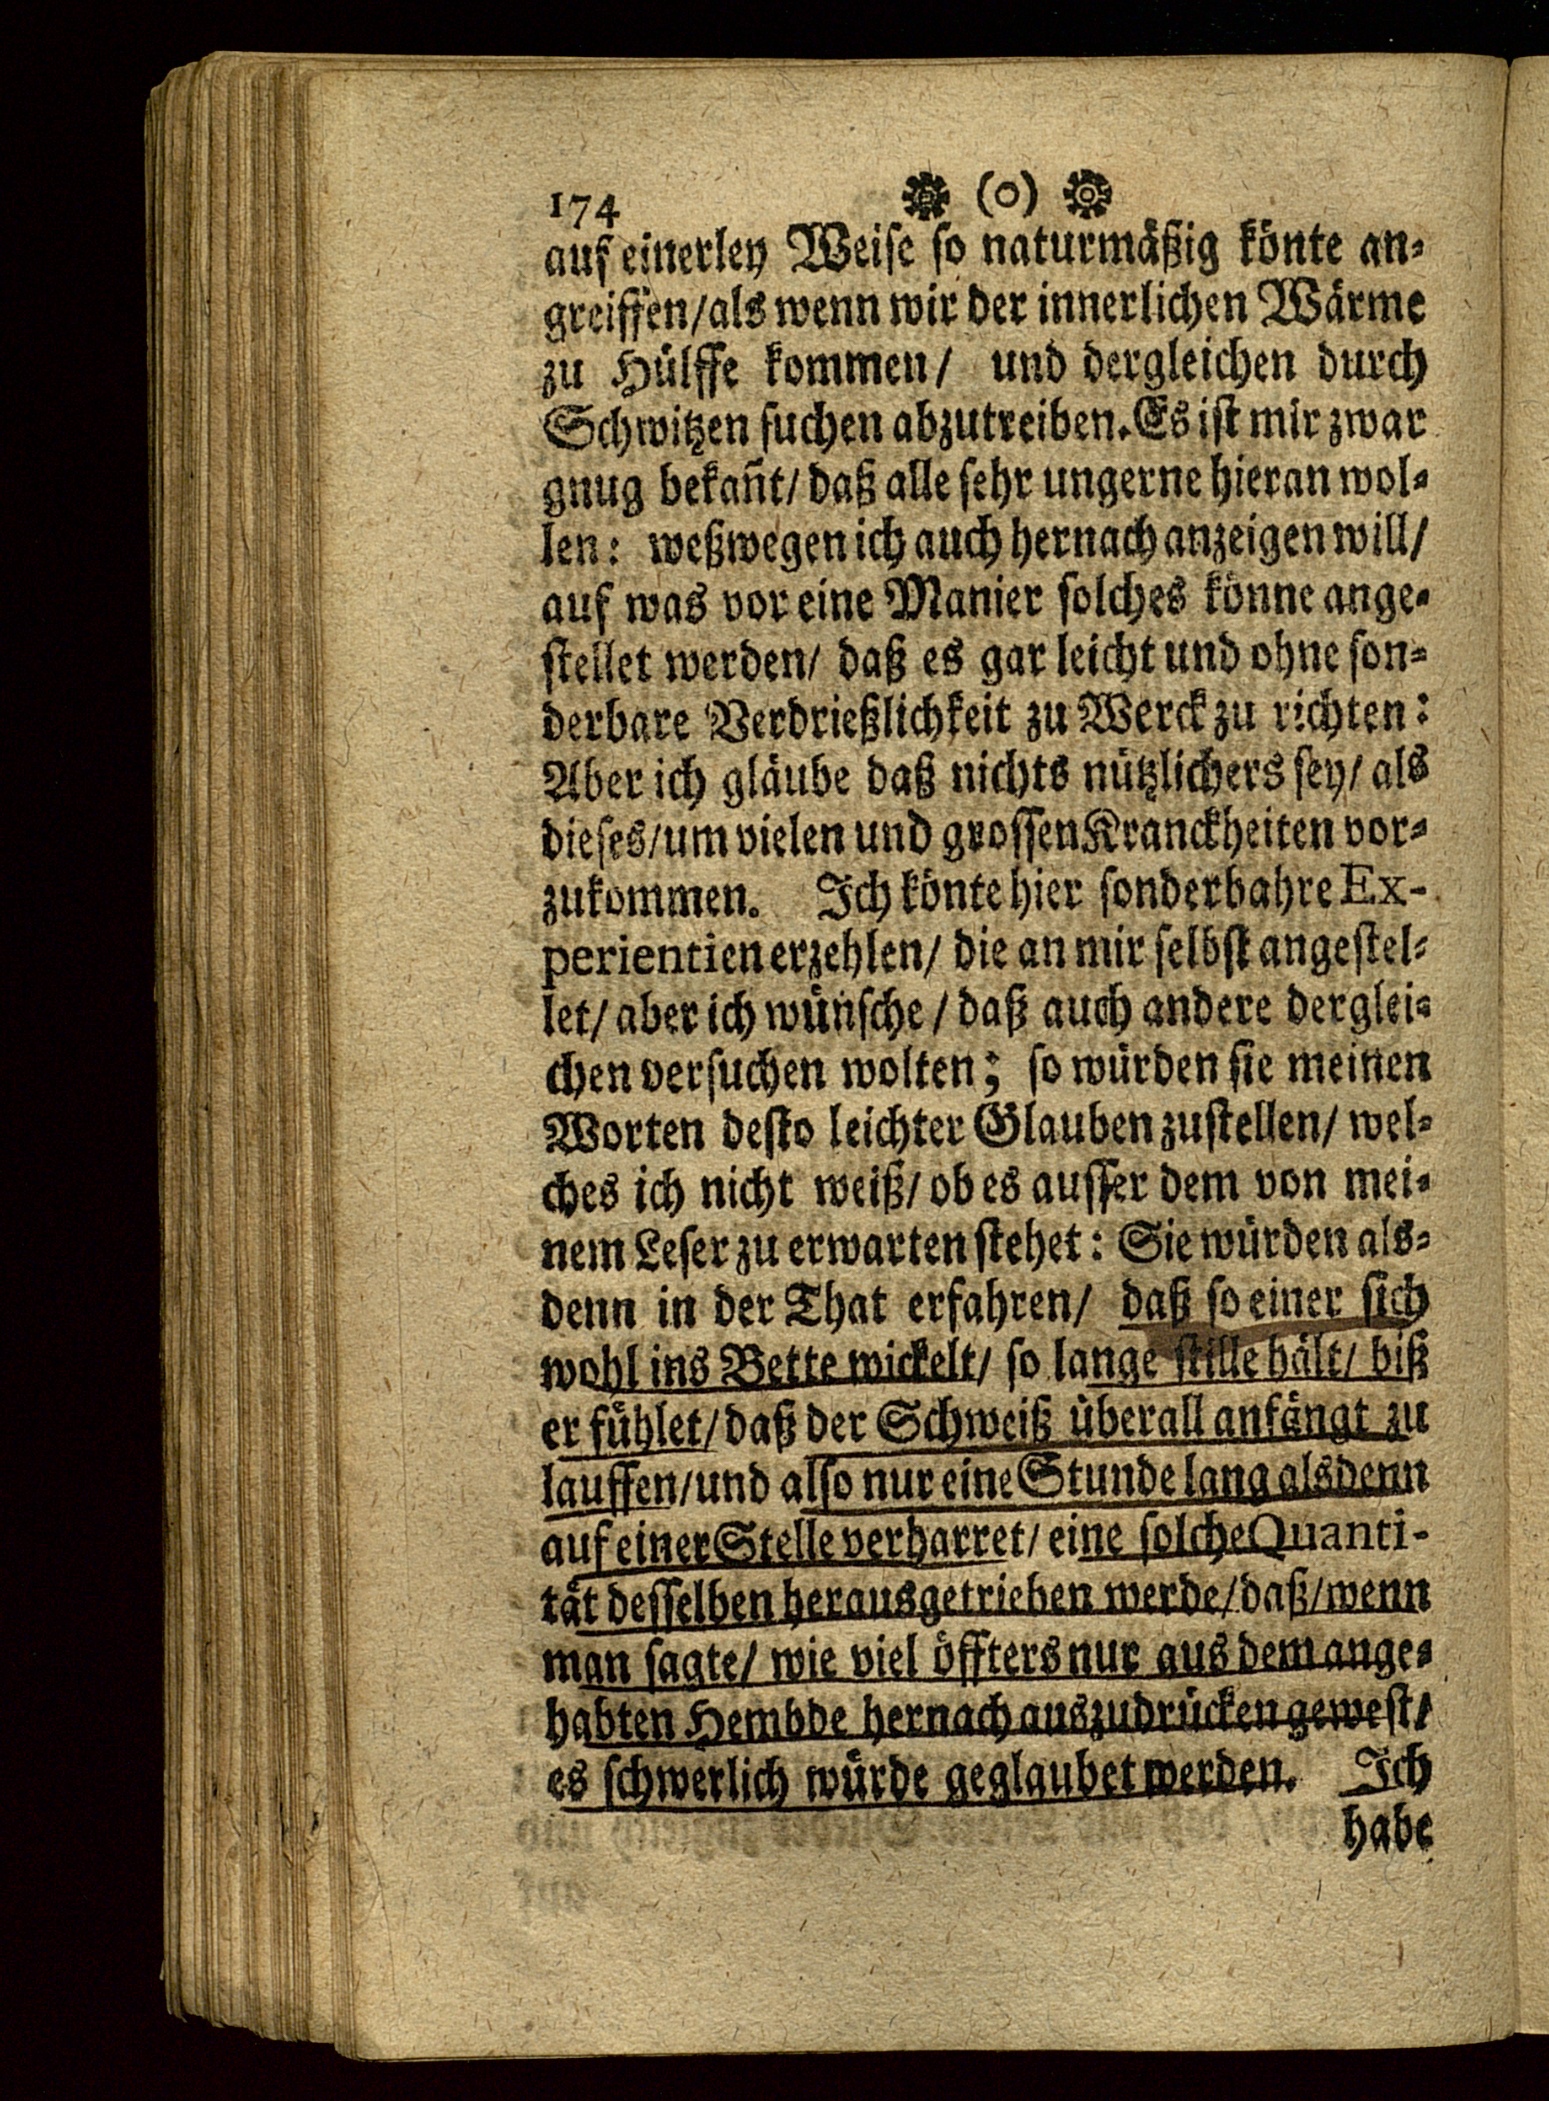 174 (o)
auf einerley Weise so naturmäßig könte an-
greiffen/als wenn wir der innerlichen Wärme
zu Hülffe kommen/ und dergleichen durch
Schwitzen suchen abzutreiben. Es ist mir zwar
gnug bekañt/ daß alle sehr ungerne hieran wol-
len: weßwegen ich auch hernach anzeigen will/
auf was vor eine Manier solches könne ange-
stellet werden/ daß es gar leicht und ohne son-
derbare Verdrießlichkeit zu Werck zu richten:
Aber ich gläube daß nichts nützlichers sey/ als
dieses/um vielen und grossen Kranckheiten vor-
zukommen. Ich könte hier sonderbahre Ex-
perientien erzehlen/ die an mir selbst angestel-
let/ aber ich wünsche/ daß auch andere derglei-
chen versuchen wolten; so würden sie meinen
Worten desto leichter Glauben zustellen/ wel-
ches ich nicht weiß/ ob es ausser dem von mei-
nem Leser zu erwarten stehet: Sie würden als-
denn in der That erfahren/ daß so einer sich
wohl ins Bette wickelt/ so lange stille hält/ biß
er fühlet/ daß der Schweiß überall anfängt zu
lauffen/und also nur eine Stunde lang alsdenn
auf einer Stelle verharret/ eine solche Quanti-
tät desselben herausgetrieben werde/daß/wenn
man sagte/ wie viel öffters nur aus dem ange-
habten Hembde hernach auszudrücken gewest/
es schwerlich würde geglaubet werden. Ich
habe